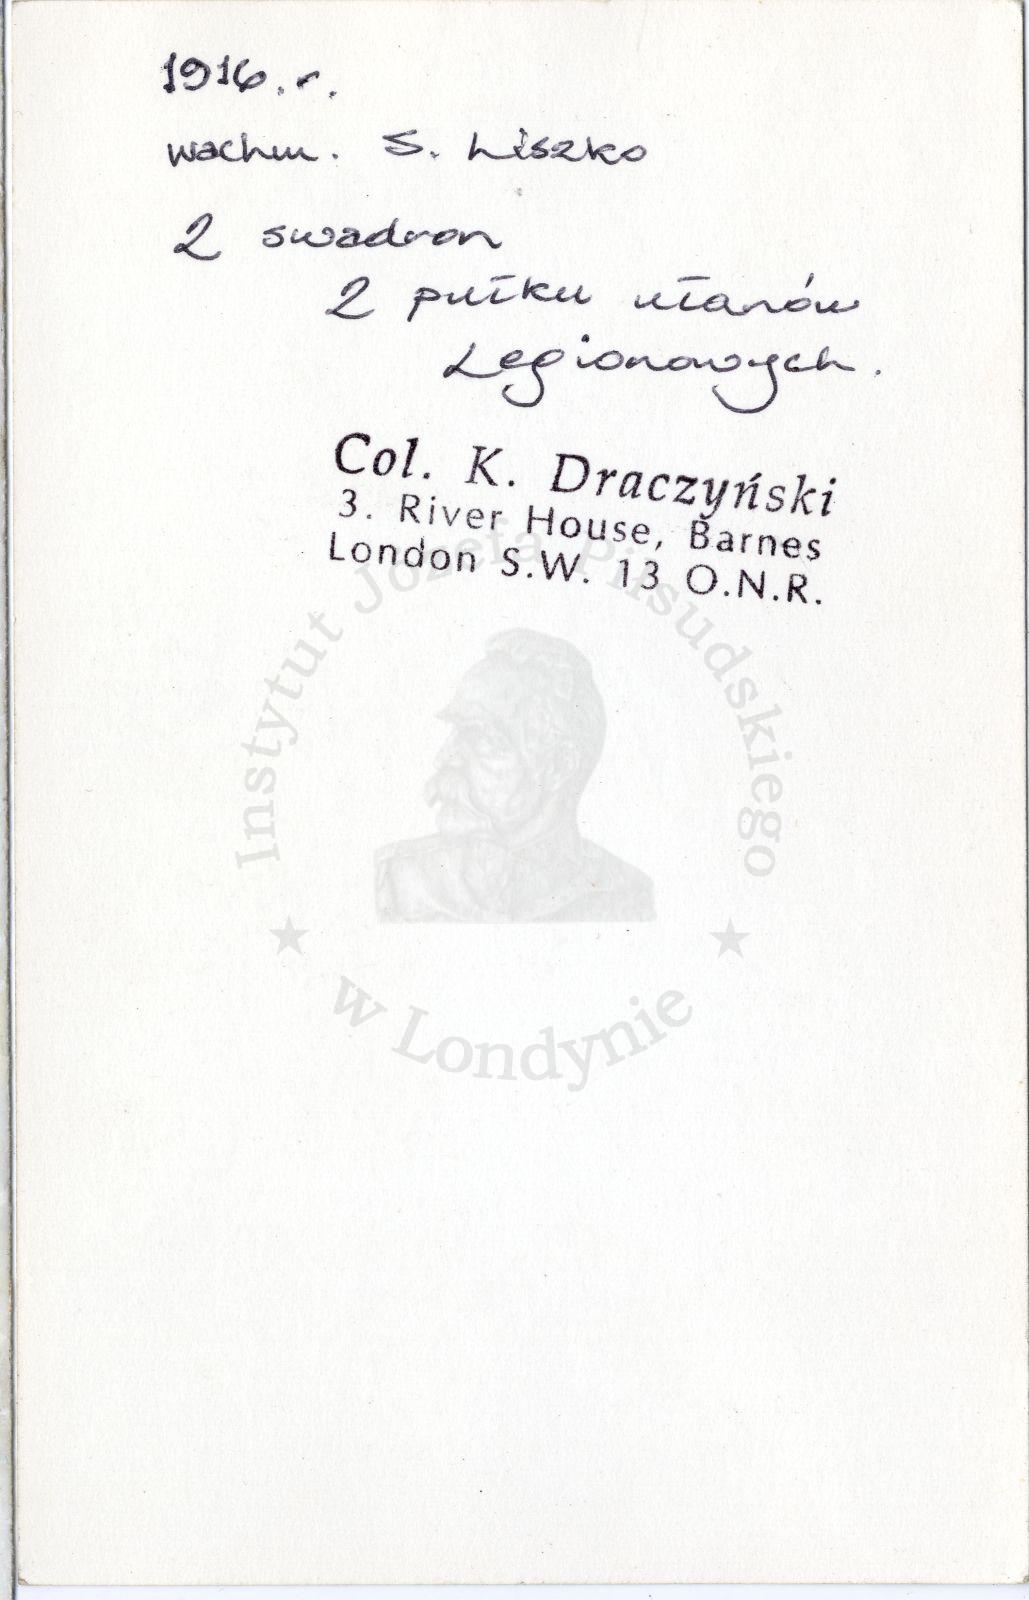 1916.r.
wachm. S. Liszko
2 swadron
2 pułku ułanów
Legionowych.
Col. K. Draczyński
3. River House, Barnes
London S.W. 13 O.N.R.
Instytut Józefa Piłsudskiego
w Londynie